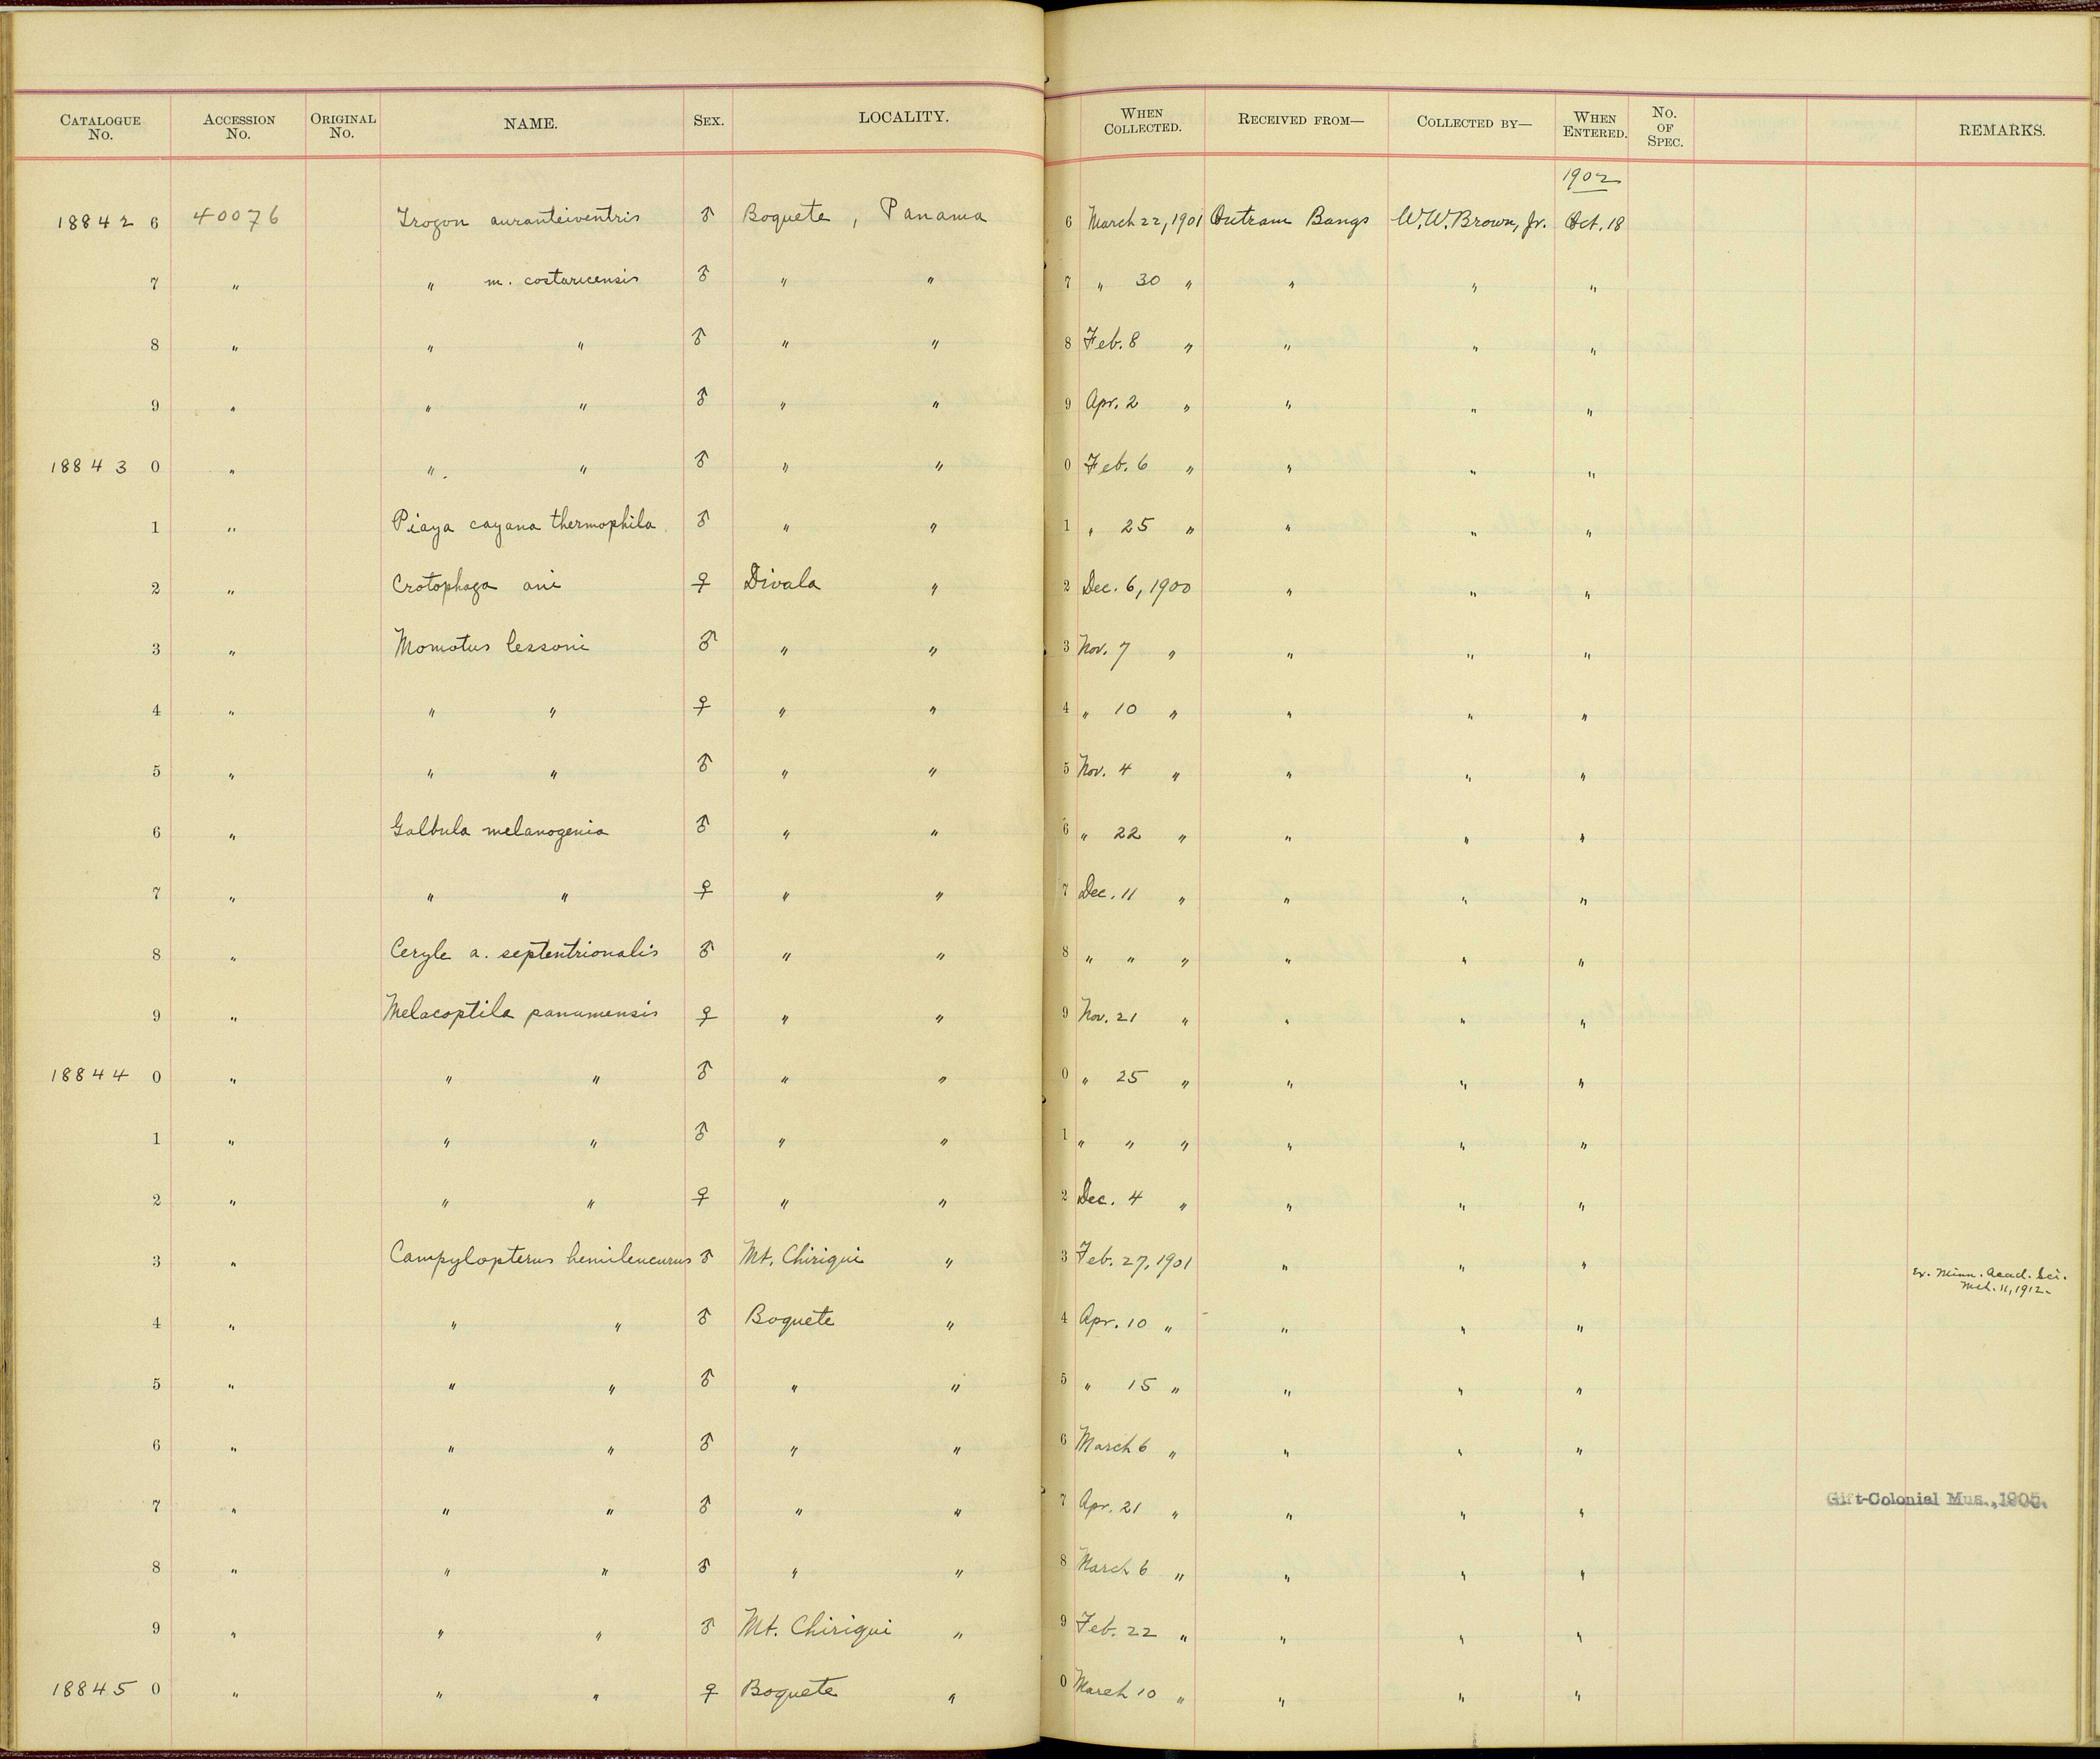 CATALOGUE No. ACCESSION No. ORIGINAL No. NAME. SEX. LOCALITY. WHEN COLLECTED. RECEIVED FROM— COLLECTED BY— WHEN ENTERED. No. OF SPEC. REMARKS.
1902
18842 6 40076 Trogon auranteiventris ♂ Boquete, Panama 6 March 22, 1901 Outram Bangs W.W. Brown, Jr. Oct. 18
7 " " m. costaricensis ♂ " " 7 " 30 " " " "
8 " " " ♂ " " 8 Feb. 8 " " " "
9 " " " ♂ " " 9 Apr. 2 " " " "
18843 0 " " " ♂ " " 0 Feb. 6 " " " "
1 " Piaya cayana thermophila ♂ " " 1 " 25 " " " "
2 " Crotophaga ani ♀ Divala " 2 Dec. 6, 1900 " " "
3 " Momotus lessoni ♂ " " 3 Nov. 7 " " " "
4 " " " ♀ " " 4 " 10 " " " "
5 " " " ♂ " " 5 Nov. 4 " " " "
6 " Galbula melanogenia ♂ " " 6 " 22 " " " "
7 " " " ♀ " " 7 Dec. 11 " " " "
8 " Ceryle a. septentrionalis ♂ " " 8 " " " " " "
9 " Melacoptila panamensis ♀ " " 9 Nov. 21 " " " "
18844 0 " " " ♂ " " 0 " 25 " " " "
1 " " " ♂ " " 1 " " " " " "
2 " " " ♀ " " 2 Dec. 4 " " " "
3 " Campylopterus hemileucurus ♂ Mt. Chiriqui " 3 Feb. 27, 1901 " " " Ex. Minn. Acad. Sci.
Mch. 11, 1912.
4 " " " ♂ Boquete " 4 Apr. 10 " " " "
5 " " " ♂ " " 5 " 15 " " " "
6 " " " ♂ " " 6 March 6 " " " "
7 " " " ♂ " " 7 Apr. 21 " " " " Gift-Colonial Mus., 1905.
8 " " " ♂ " " 8 March 6 " " " "
9 " " " ♂ Mt. Chiriqui " 9 Feb. 22 " " " "
18845 0 " " " ♀ Boquete " 0 March 10 " " " "